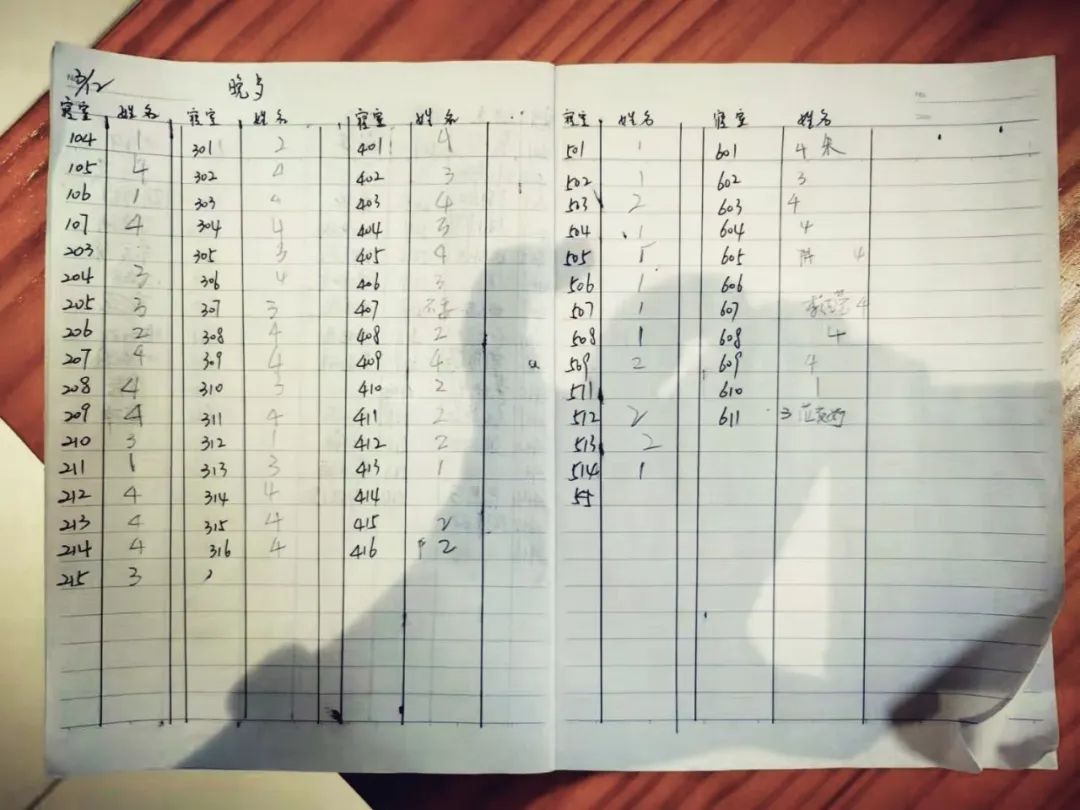 3/12 晚点
寝室 姓名 寝室 姓名 寝室 姓名 寝室 姓名 寝室 姓名
104 1 301 2 401 4 501 1 601 4 朱
105 4 302 4 402 3 502 1 602 3
106 1 303 403 4 503 2 603 4
107 4 304 4 404 3 504 1 604 4
203 305 3 405 4 505 1 605 4
204 3 306 4 406 3 506 1 606
205 3 307 3 407 507 1 607 4
206 2 308 4 408 2 508 1 608 4
207 4 309 4 409 4 509 2 609 4
208 4 310 3 410 2 511 610 1
209 4 311 4 411 2 512 2 611 3
210 3 312 1 412 2 513 2
211 1 313 3 413 1 514 1
212 4 314 4 414 515
213 4 315 4 415 2
214 4 316 4 416 2
215 3